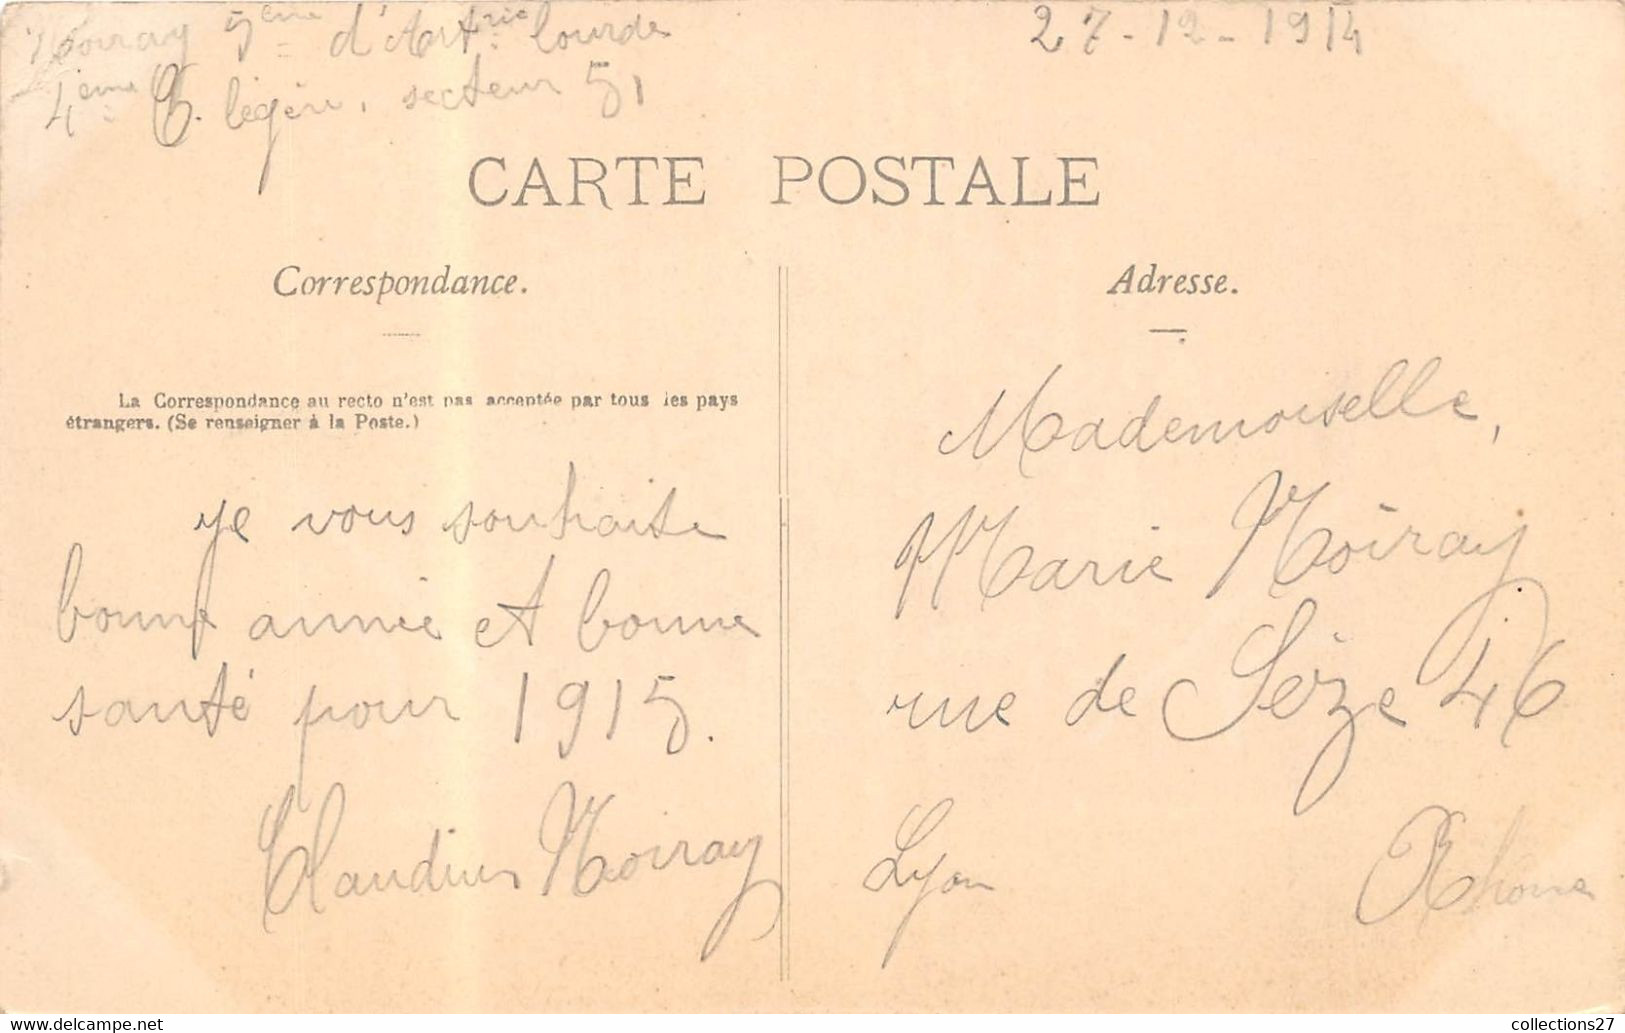 Noiray 5eme d'Artrie lourde
4eme C. légère, secteur 51
27-12-1914
CARTE POSTALE
Correspondance.
La Correspondance au recto n'est pas acceptée par tous les pays
étrangers. (Se renseigner à la Poste.)
je vous souhaite
bonne année et bonne
santé pour 1915.
Claudius Noiray
Adresse.
Mademoiselle,
Marie Noiray
rue de Sèze 46
Lyon Rhone
collections27